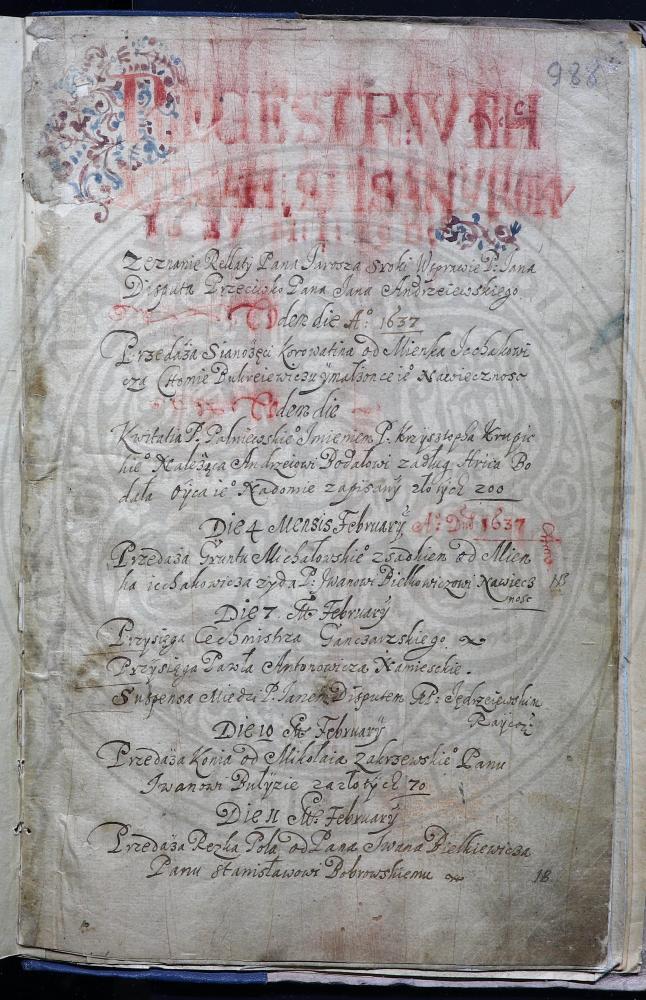 988
REGESTRVM
Zeznanie Rellaty Pana Jarosza Sroki Wsprawie P: Jana
Disputa Przeciwko Pana Jana Andrzeiewskiego
Eodem die A⁰: 1637
Przedaża Sianożęci Korowatina od Mienka Icchakowi
cza Chomie Bukreiewiczu ymałżonce ie⁰ Nawiecznosc
Eodem die
Kwitatia P: Palniewskie⁰ Imieniem P: Krzysztopha Krupic
kie⁰ Należąca Andrzeiowi Bodałowi zadług Hrica Bo
dała Oyca ie⁰ Nadomie zapisany złotych 200
Die 4 Mensis February A⁰: Dni 1637
Przedaża Gruntu Michałowskie⁰ zsadkiem od Mien
ka icchakowicza zyda P: Iwanowi Bielkowiczowi Nawiecz
nosc
NB
Die 7 February
Przysięga Cechmistrza Ganczarzskiego
Przysięga Pawła Antonowicza Namieskie.
Suspensa Miedzi P. Janem Disputem P: Jędrzeiewskim
Raycą
Die 10 February
Przedaża Konia od Mikołaia Zakrzewskie⁰ Panu
Iwanowi Bułyzie zazłotych 70
Die 11 February
Przedaża Rezka Pola od Pana Iwana Bielkiewicza
Panu Stanisławowi Bobrowskiemu
NB.